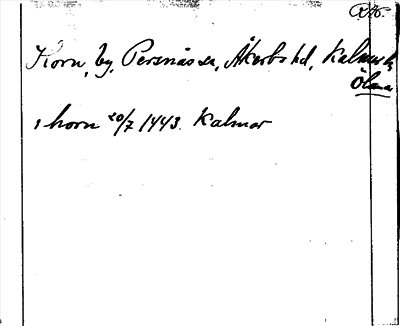 RA.
Horn, by, Persnäs sn, Åkerbo hd, Kalmar l.
Öland
i horn 20/7 1443. Kalmar